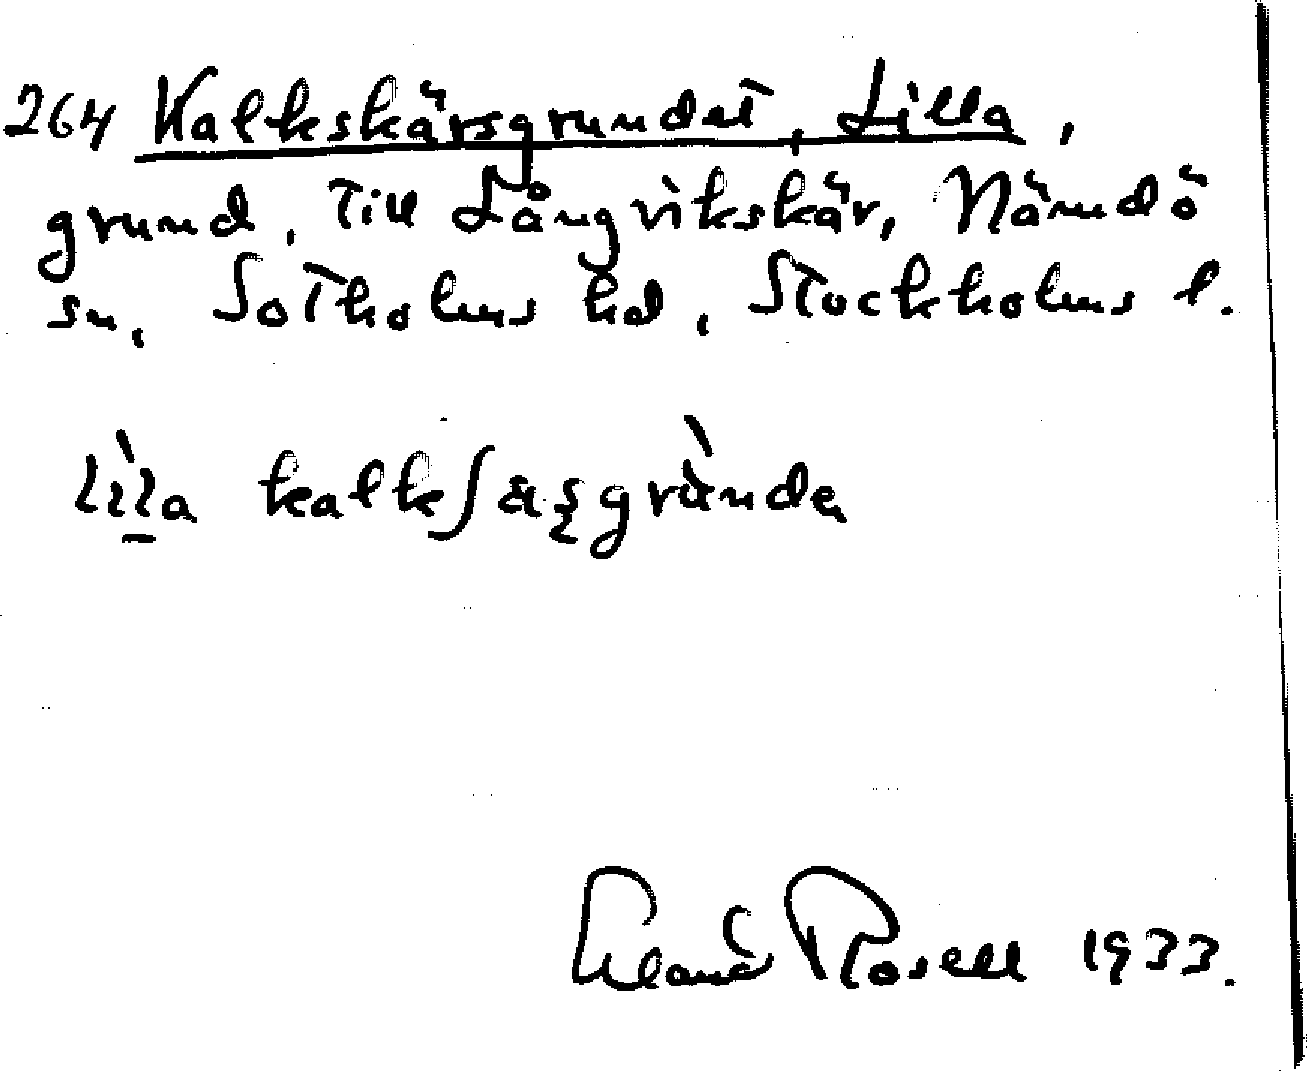 264 Kalkskärsgrundet, Lilla,
grund, till Långvikskär, Nämdö
sn, Sotholms hd, Stockholms l.
kalk
Rosell 1933.